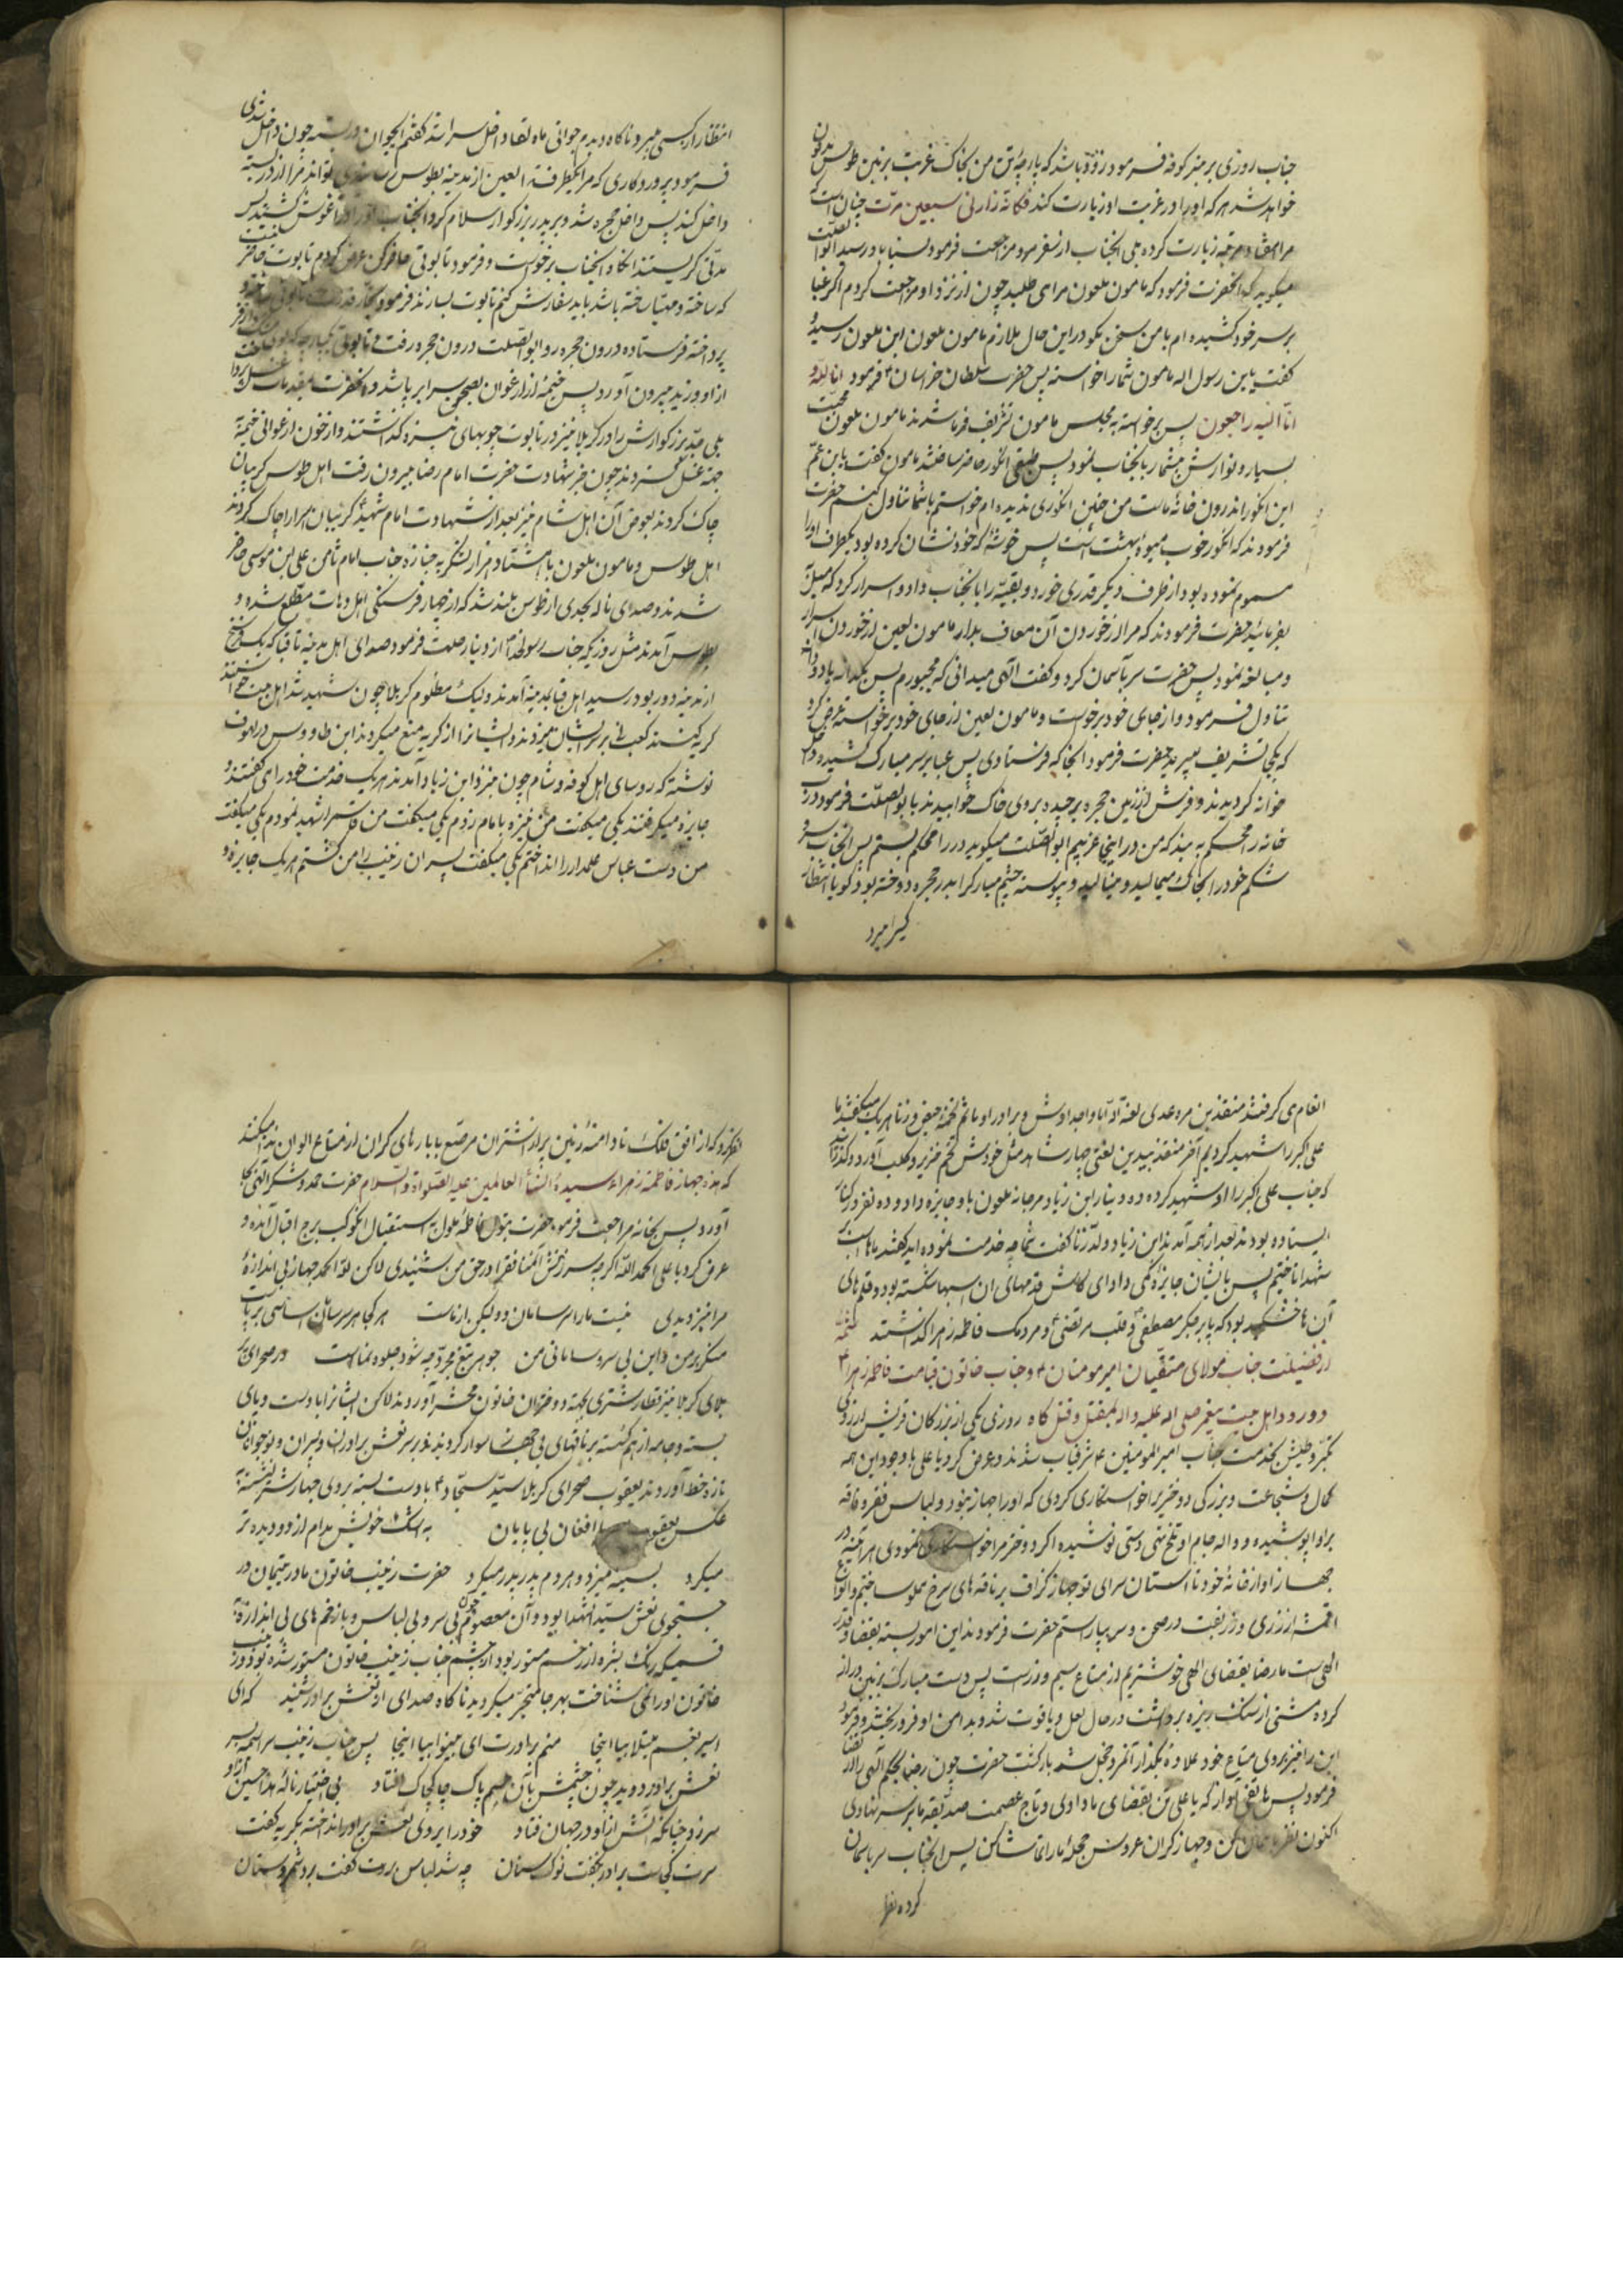 جناب روزی بر منبر کوفه فرمود زود باشد که پارچهٔ تن من بخاک غربت بزمین طوس مدفون
خواهد شد هر که او را در غربت او زیارت کند فکانّه زارنی سبعین مرّت چنان است که
مرا هفتاد مرتبه زیارت کرده بلی انجناب از سفر مرو مراجعت فرمود بسناباد رسید ابوالصلت
میکوید که انحضرت فرمود که مامون ملعون مرا می طلبد چون از نزد او مراجعت کردم اکر عبا
بر سر خود کشیده ام با من سخن مکو در این حال ملازم مامون ملعون ابن ملعون رسید و
کفت یابن رسول اله مامون شما را خواسته پس حضرت سلطان خراسان فرمود انا للّه و
انّا الیه راجعون پس برخواسته بمجلس مامون تشریف فرما شدند مامون ملعون محبت
بسیار و نوازش بیشمار بانجناب نمود پس طبقی انکور حاضر ساختند مامون کفت یابن عمّ
این انکور اندرون خانهٔ ماست من چنین انکوری ندیده ام خواستم با شما تناول کنم حضرت
فرمودند که انکور خوب میوهٔ بهشت است پس خوشهٔ که خود نشان کرده بود یکطرف او را
مسموم نموده بود از طرف دیکر قدری خورد و بقیّه را بانجناب داد و اسرار کرد که میل
بفرمائید حضرت فرمودند که مرا از خوردن آن معاف بدار مامون لعین در خوردن اسرار
و مبالغه نمود پس حضرت سر بآسمان کرد و کفت الهی میدانی که مجبورم پس یکدانه یا دو دانه
تناول فرمود و از جای خود برخواست و مامون لعین از جای خود برخواسته عرض کرد
که بکجا تشریف میبرید حضرت فرمود انجا که فرستادی پس عبا بر سر مبارک کشیده داخل
خانه کردیدند و فرش از زمین حجره برچیده بروی خاک خوابیدند با بوالصلت فرمود در
خانه را محکم به بند که من در اینجا غریبم ابوالصّلت میکوید در را محکم بستم پس انجناب سر و
شکم خود را بخاک میمالید و مینالید و پیوسته چشم مبارکرا بدر حجره دوخته بود کویا انتظار
کسیرا میبرد
انتظار از کسی میبرد ناکاه دیدم جوانی ماه لقا داخل سرا شد کفتم ایجوان در بسته چون داخل شدی
فرمود پروردکاری که مرا بیکطرفة العین از مدینه بطوس تواند مرا از در بسته
داخل کند پس داخل حجره شد و بر پدر بزرکوار سلام کرد انجناب او را در آغوش کشید پس
مدّتی کریستند انکاه انجناب برخواست و فرمود تابوتی حاضر کن عرض کردم تابوت حاضر نیست
که ساخته و مهیّا ساخته باشد باید سفارش کنم تابوت بسازند فرمود
پرداخته فرستاده درون حجره رو ابوالصلت درون حجره رفت تابوتی
از او وزید بیرون آورد پس خیمهٔ از ارغوان بصحن سرا بر پا شد و انحضرت
بلی جدّ بزرکوارش را در کربلا نیز در تابوت چوبهای نیزه کذاشتند و از خون ارغوانی خیمهٔ
جهة غسل کستردند چون خبر شهادت حضرت امام رضا بیرون رفت اهل طوس کریبان
چاک کردند بعوض آن اهل شام نیز بعد از شهادت امام شهید کریبان اسرا را چاک کردند
اهل طوس و مامون ملعون با هشتاد هزار لشکر به جنازه جناب امام ثامن علی ابن موسی حاضر
شدند و صدای ناله بحدی از طوس بلند شد که از چهار فرسنکی اهل دهات مطلع شده و
بطوس آمدند مثل روزیکه جناب رسولخدا از دنیا رحلت فرمود صدای اهل مدینه تا قبا که یک فرسخ
از مدینه دور بود رسید اهل قبا بمدینه آمدند و لیک مظلوم کربلا چون شهید شد اهل بیت میخواستند
کریه کنند کعب نی بر سر ایشان میزدند و ایشانرا از کریه منع میکردند ابن طاووس در لهوف
نوشته که روسای اهل کوفه و شام چون نزد ابن زیاد آمدند هر یک خدمت خود را می کفتند و
جایزه میکرفتند یکی میکفت من نیزه بامام زدم یکی میکفت من قاسم را شهید نمودم یکی میکفت
من دست عباس علمدار را انداختم یکی میکفت پسران زینب را من کشتم هر یک جایزه و
انعام می کرفتند منقذ بن مره عبدی لعنة آبا و اجدادش و برادر او ما تم لخمه حیض و زنا هر یک میکفتند ما
علی اکبر را شهید کردیم آخر منقذ بیدین لعنتی چهار شاهد مثل خودش تخم خنزیر و کلب آورد و کذرانید
که جناب علی اکبر را او شهید کرده و ده دینار ابن زیاد مرجانه ملعون باو جایزه داد و ده نفر در کنار
ایستاده بودند بعد از همه آمدند ابن زیاد ولد زنا کفت شما چه خدمت نموده اید کفتند ما اسب بر
شهدا تاختیم پس بایشان جایزهٔ کمی داد ای کاش قدمهای ان اسبها شکسته بود و قلم های
آن ها خشکید بود که پا بر جکر مصطفی و قلب مرتضی و مردمک فاطمه زهرا کذاشتند تتمّه
از فضیلت جناب مولای متقیان امیر مومنان و جناب خاتون قیامت فاطمه زهرا
و ورود اهل بیت پیغمبر صلی اله علیه و اله بمقتل و قتل کاه روزی یکی از بزرکان قریش از روی
تکبّر و طیش بخدمت جناب امیرالمومنین شرفیاب شدند و عرض کرد یا علی با وجود این همه
کمال و شجاعت و بزرکی دو دختریرا خواستکاری کردی که او را جهاز نبود و لباس فقر و فاقه
بر او پوشیده و واله جام او تلخ تهی دستی نوشیده اکر دختر مرا خواستکاری نمودی هر آینه در
جهاز او از خانهٔ خود تا استان سرای تو جهاز کزاف بر ناقه های سرخ مملو ساختم و انواع
اقمشه از زری و زربفت در صحن و سر بیاراستم حضرت فرمودند این امور بسته بقضا و قدر
الهی است ما رضا بقضای الهی خوشتریم از متاع سیم و زرست پس دست مبارک بزمین دراز
کرده مشتی از سنک ریزه برداشت در حال لعل و یاقوت شد و بدامن او فرو ریخت و فرمود
این را نیز بروی متاع خود علاوه بکذار آنمرد خجل شد بازکشت حضرت چون رضا بحکم الهی قضا در
فرمود پس هاتفی آواز که یا علی تن بقضای ما دادی و تاج عصمت صدیقه ما بر سر نهادی
اکنون نظر بآسمان کن و جهاز کران عروس حجلهٔ ما را تماشا کن پس انجناب سر بآسمان
کرده نظر
نظر کرد که از افق فلک تا دامنهٔ زمین پر از شتران مرصّع با بارهای کران از متاع الوان ندا میکند
که هذه جهاز فاطمة زهراء سیدة النساء العالمین علیه الصلواة و السّلام حضرت حمد و شکر الهی بجا
آورد پس بخانه مراجعت فرمود حضرت بتول فاطمهٔ ملول استقبال انکوکب برج اقبال آمده و
عرض کرد یا علی الحمد اللّه اکر چه سرزنش اغنیا فقرا در حق من بشنیدی لاکن للّه الحمد جهاز بی اندازهٔ
مرا نیز دیدی نیست ما را سر سامان و و لیکن از ماست هر کجا بر سر سامان اساسی بر پاست
منکر بر من و این بی سر و سامانی من جوهر تیغ مجرد چه شود جلوه نماست در صحرای
بلای کربلا نیز قطار شتری بجهة دختران خاتون محشر آوردند لاکن ایشانرا با دست و پای
بسته و جامه از هم کسسته بر ناقهای بی جهاز سوار کردند و بر سر نعش برادران و پسران و نوجوانان
تازه خط آوردند یعقوب صحرای کربلا سیّد سجّاد با دست بسته بروی جهاز شتر نشسته
عکس یعقوب با افغان بی پایان به اشک خویش مدام از دو دیده تر
میکرد بسینه میزد و هر دم پدر پدر میکرد حضرت زینب خاتون مادر یتیمان در
جستجوی نعش سیّد الشهدا بود و آن معصوم چون بی سر و بی لباس و با زخم های بی اندازه
قسمیکه رنک بشره از زخم مستور بود از چشم جناب زینب خاتون مستور شده بود و زینب
خاتون او را نمی شناخت بهر جا متحیّر میکردید ناکاه صدای از نعش برادر شنید که ای
اسیر بغم مبتلا بیا اینجا منم برادرت ای بینوا بیا اینجا پس جناب زینب سراسیمه بسر
نعش برادر دوید چون چشمش بآن جسم پاک چاکچاک افتاد بی اختیار نالهٔ هذا حسین از او
سر زد چنانکه آتش از او در جهان فتاد خود را بروی نعش برادر انداخته بکریه کفت
سرت کجاست برادر بکفت نوک سنان چه شد لباس بروت کفت برد شمر و سنان